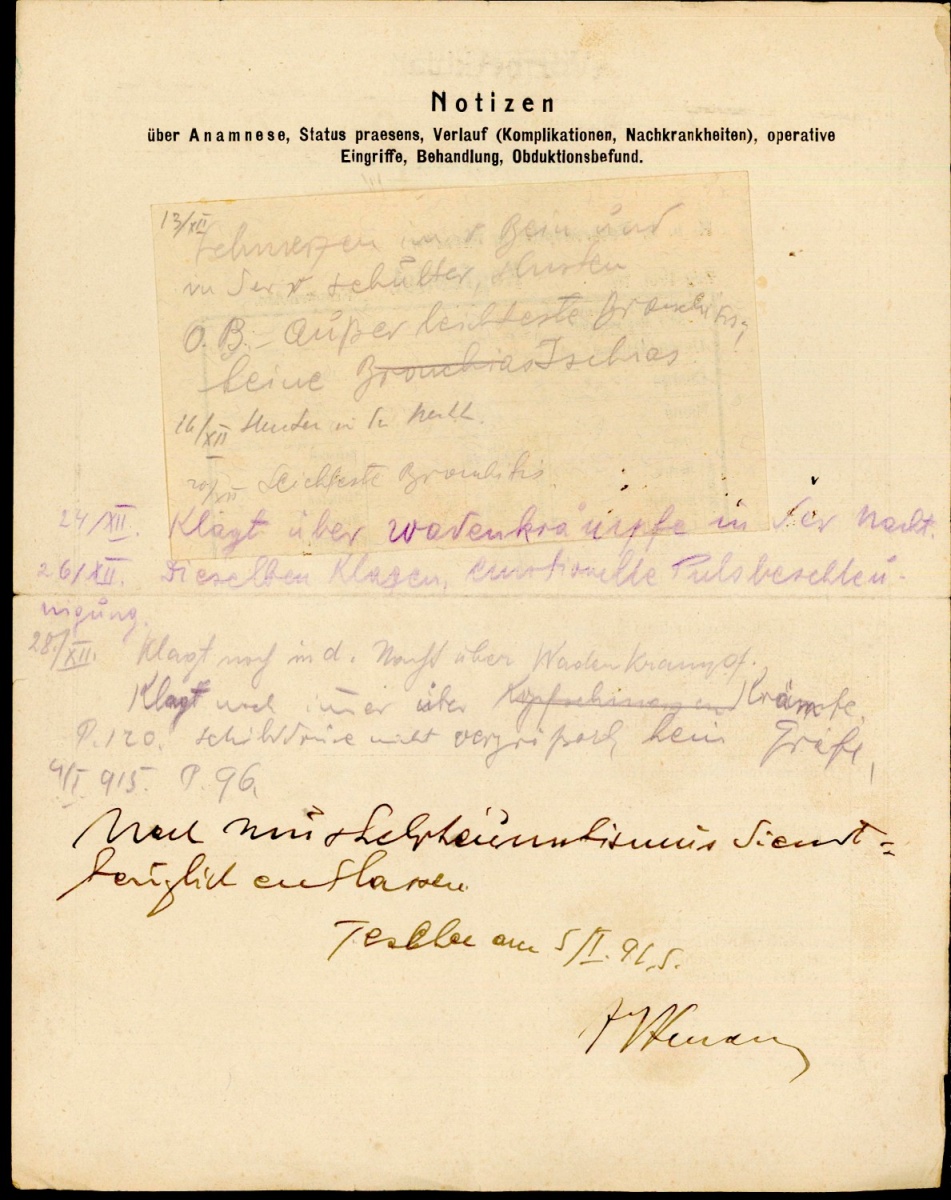 Notizen
über Anamnese, Status praesens, Verlauf (Komplikationen, Nachkrankheiten), operative
Eingriffe, Behandlung, Obduktionsbefund.
13/XII
Schmerzen im r. Bein und
in der r Schulter, Husten
O. B.- Außer leichteste Bronchitis,
keine Bronchias Ischias
16/XII Husten in der Nacht.
20/XII Leichteste Bronchitis.
24/XII. Klagt über Wadenkrämpfe in der Nacht.
26/XII. Dieselben Klagen, emotionelle Pulsbeschleu-
nigung.
28/XII. Klagt noch in d. Nacht über Wadenkrampf.
Klagt noch immer über Kopfschmerzen Krämpfe.
P. 120. Schilddrüse nicht vergrößert, kein Gräfe,
4/I 915. P. 96.
Nach Muskelrheumatismus dienst=
tauglich entlassen.
Teschen am 5/I. 915.